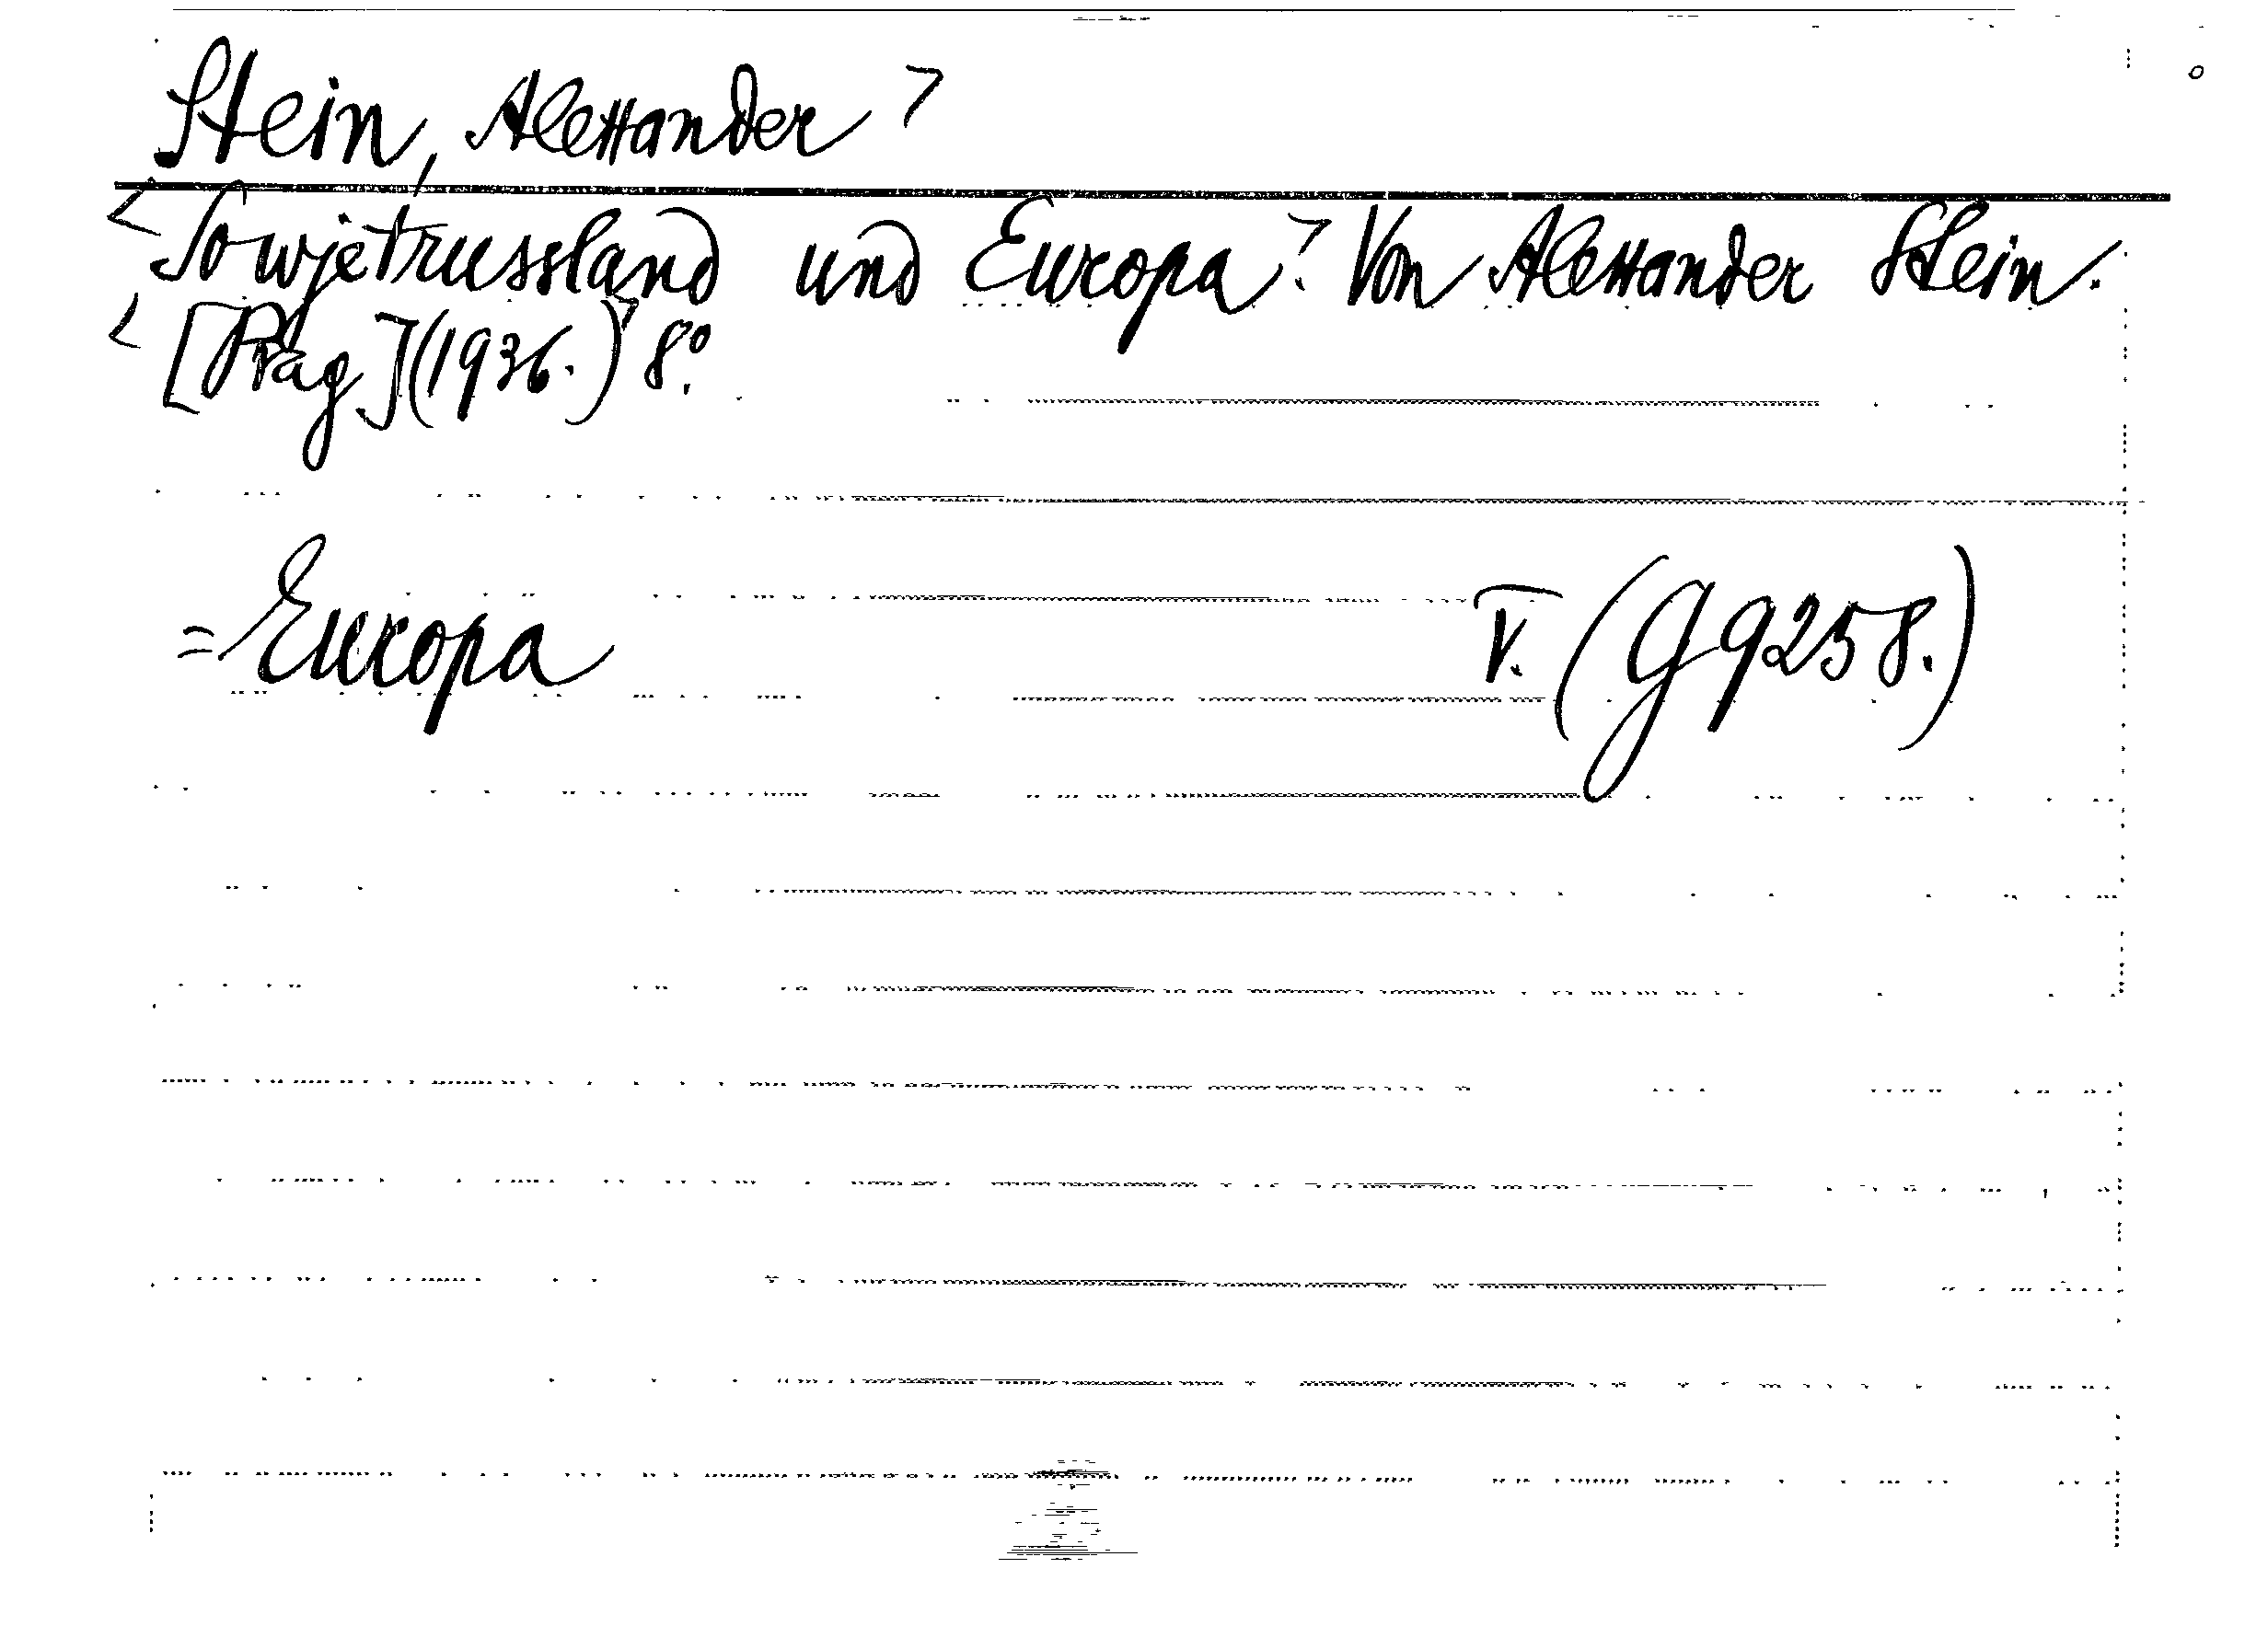 Stein, Alexander >
< Sowjetrussland und Europa >. Von Alexander Stein.
< [Prag] (1936.) > 8º.
= Europa V. (G 9258.)